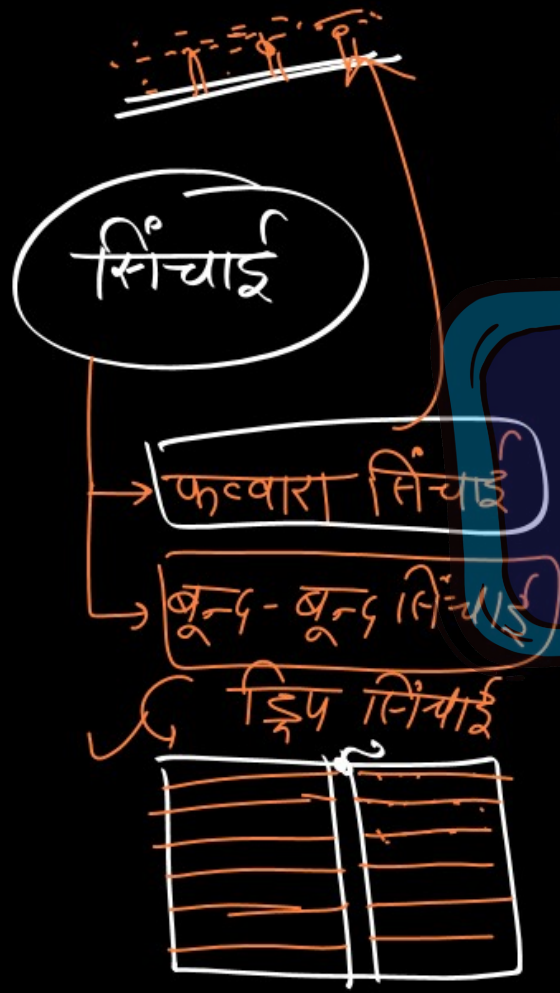 सिंचाई
फव्वारा सिंचाई
बून्द-बून्द सिंचाई
ड्रिप सिंचाई